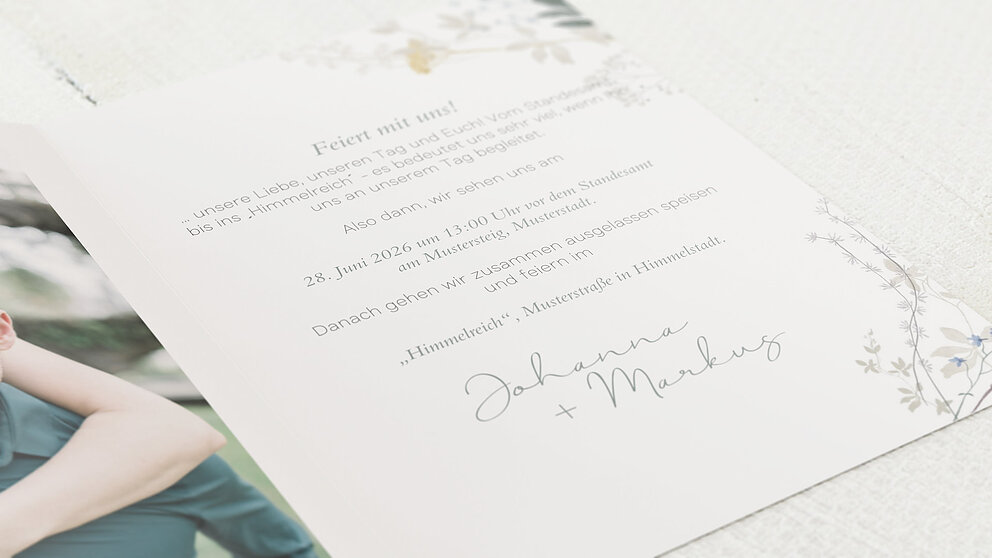 Feiert mit uns!
... unsere Liebe, unseren Tag und Euch! Vom Standesamt
bis ins „Himmelreich“ - es bedeutet uns sehr viel, wenn Ihr
uns an unserem Tag begleitet.
Also dann, wir sehen uns am
28. Juni 2026 um 13:00 Uhr vor dem Standesamt
am Mustersteig, Musterstadt.
Danach gehen wir zusammen ausgelassen speisen
und feiern im
„Himmelreich“ , Musterstraße in Himmelstadt.
Johanna
+ Markus